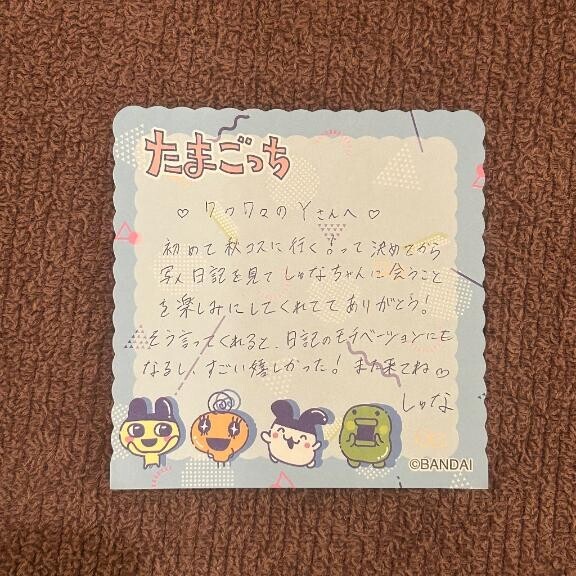 たまごっち
♡ ワクワクの Yさんへ ♡
初めて秋コスに行く!って決めてから
写メ日記を見て しゅなちゃんに会うこと
を楽しみにしてくれててありがとう!
そう言ってくれると、日記のモチベーションにも
なるし、すごい嬉しかった! また来てね♡
しゅな
©BANDAI